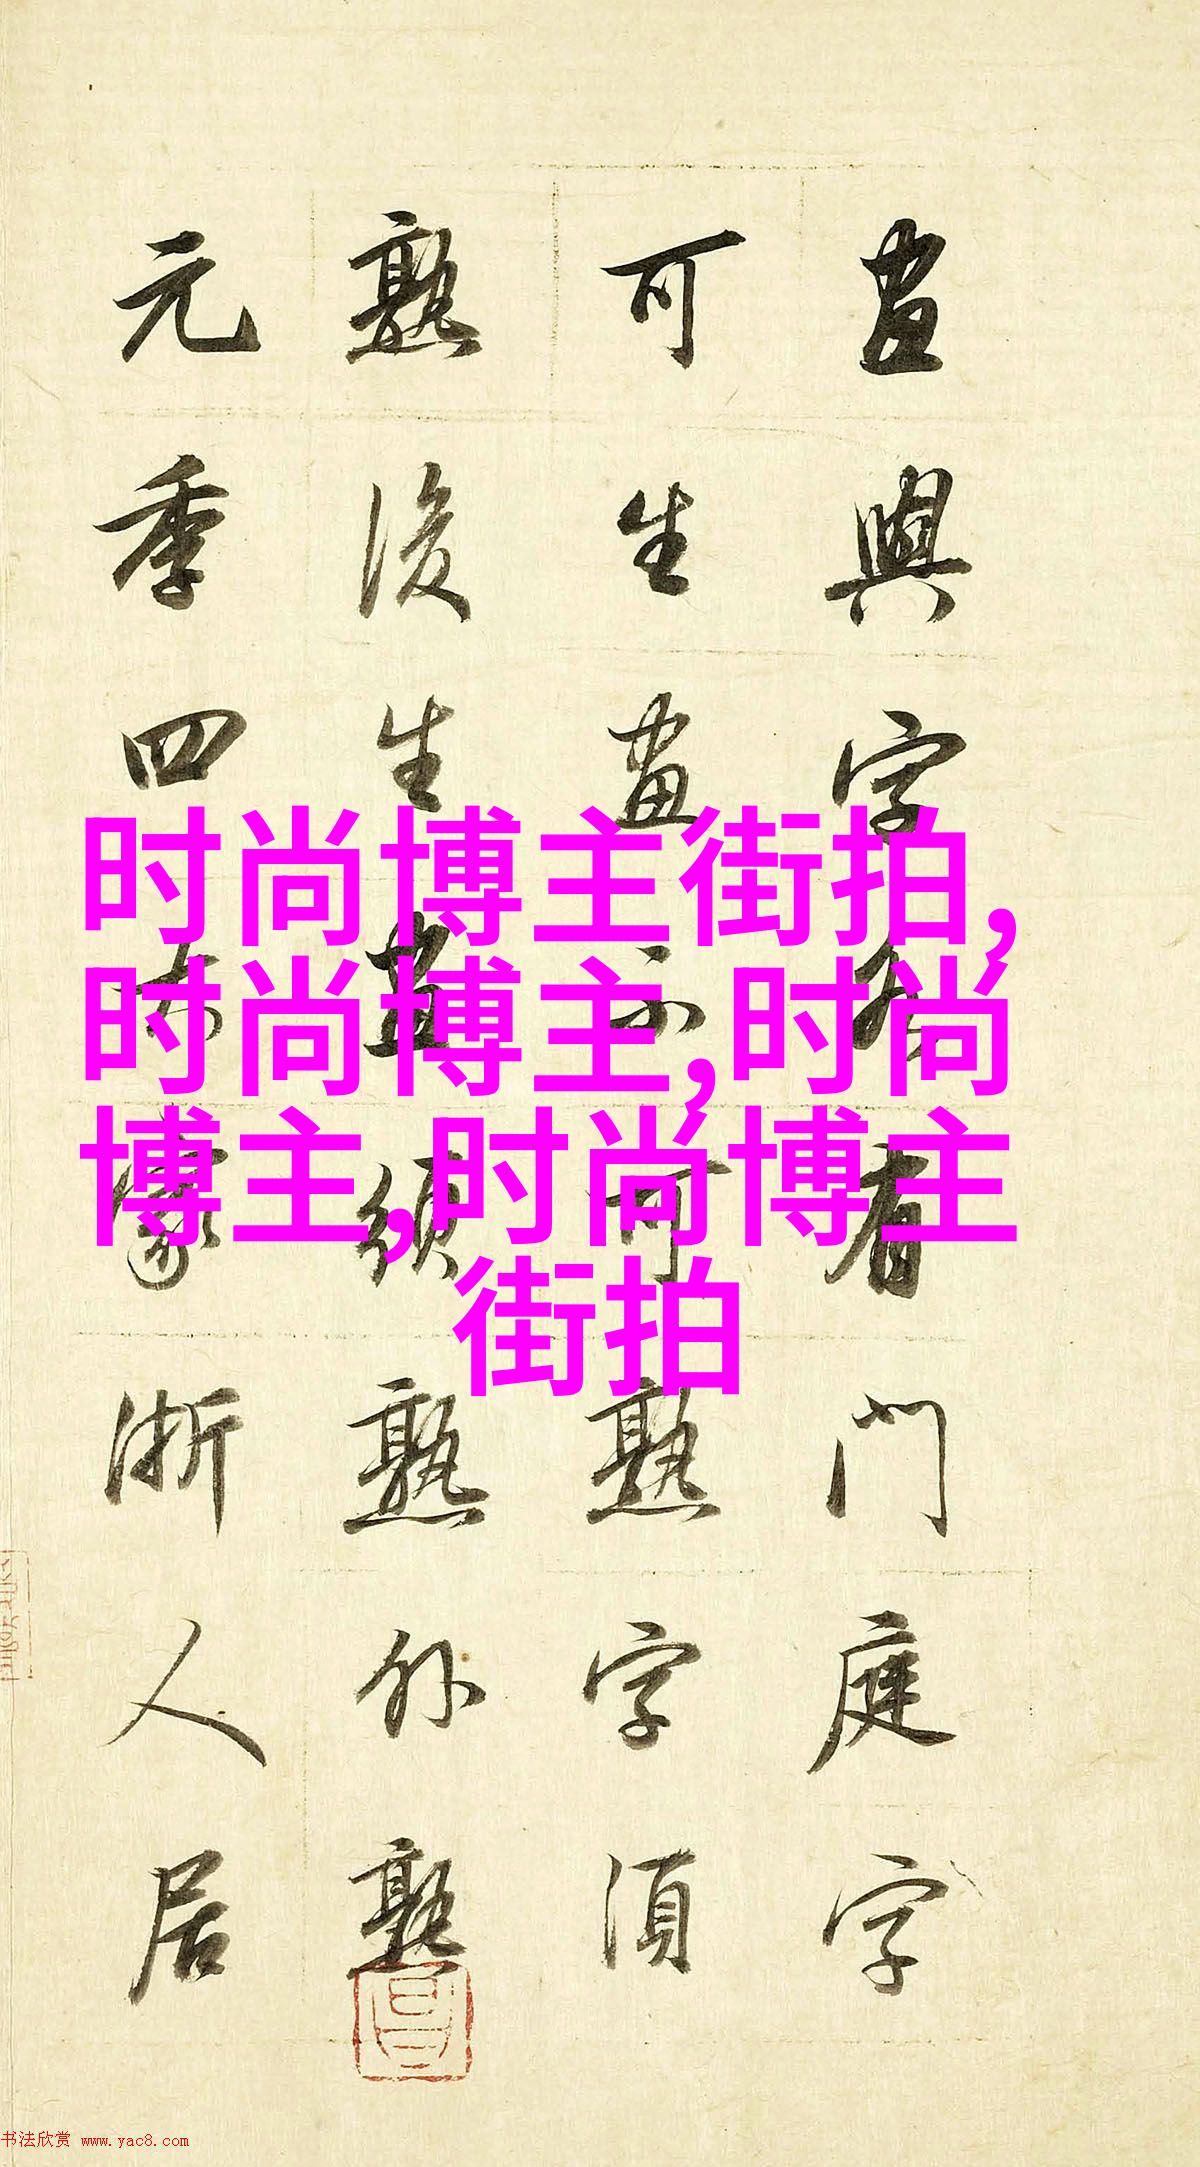 畫與字各有門庭字
可生畫不可熟字須
熟後生畫須熟外熟
元季四大家浙人居
时尚博主街拍,
时尚博主,时尚
博主,时尚博主
街拍
书法欣赏 www.yac8.com